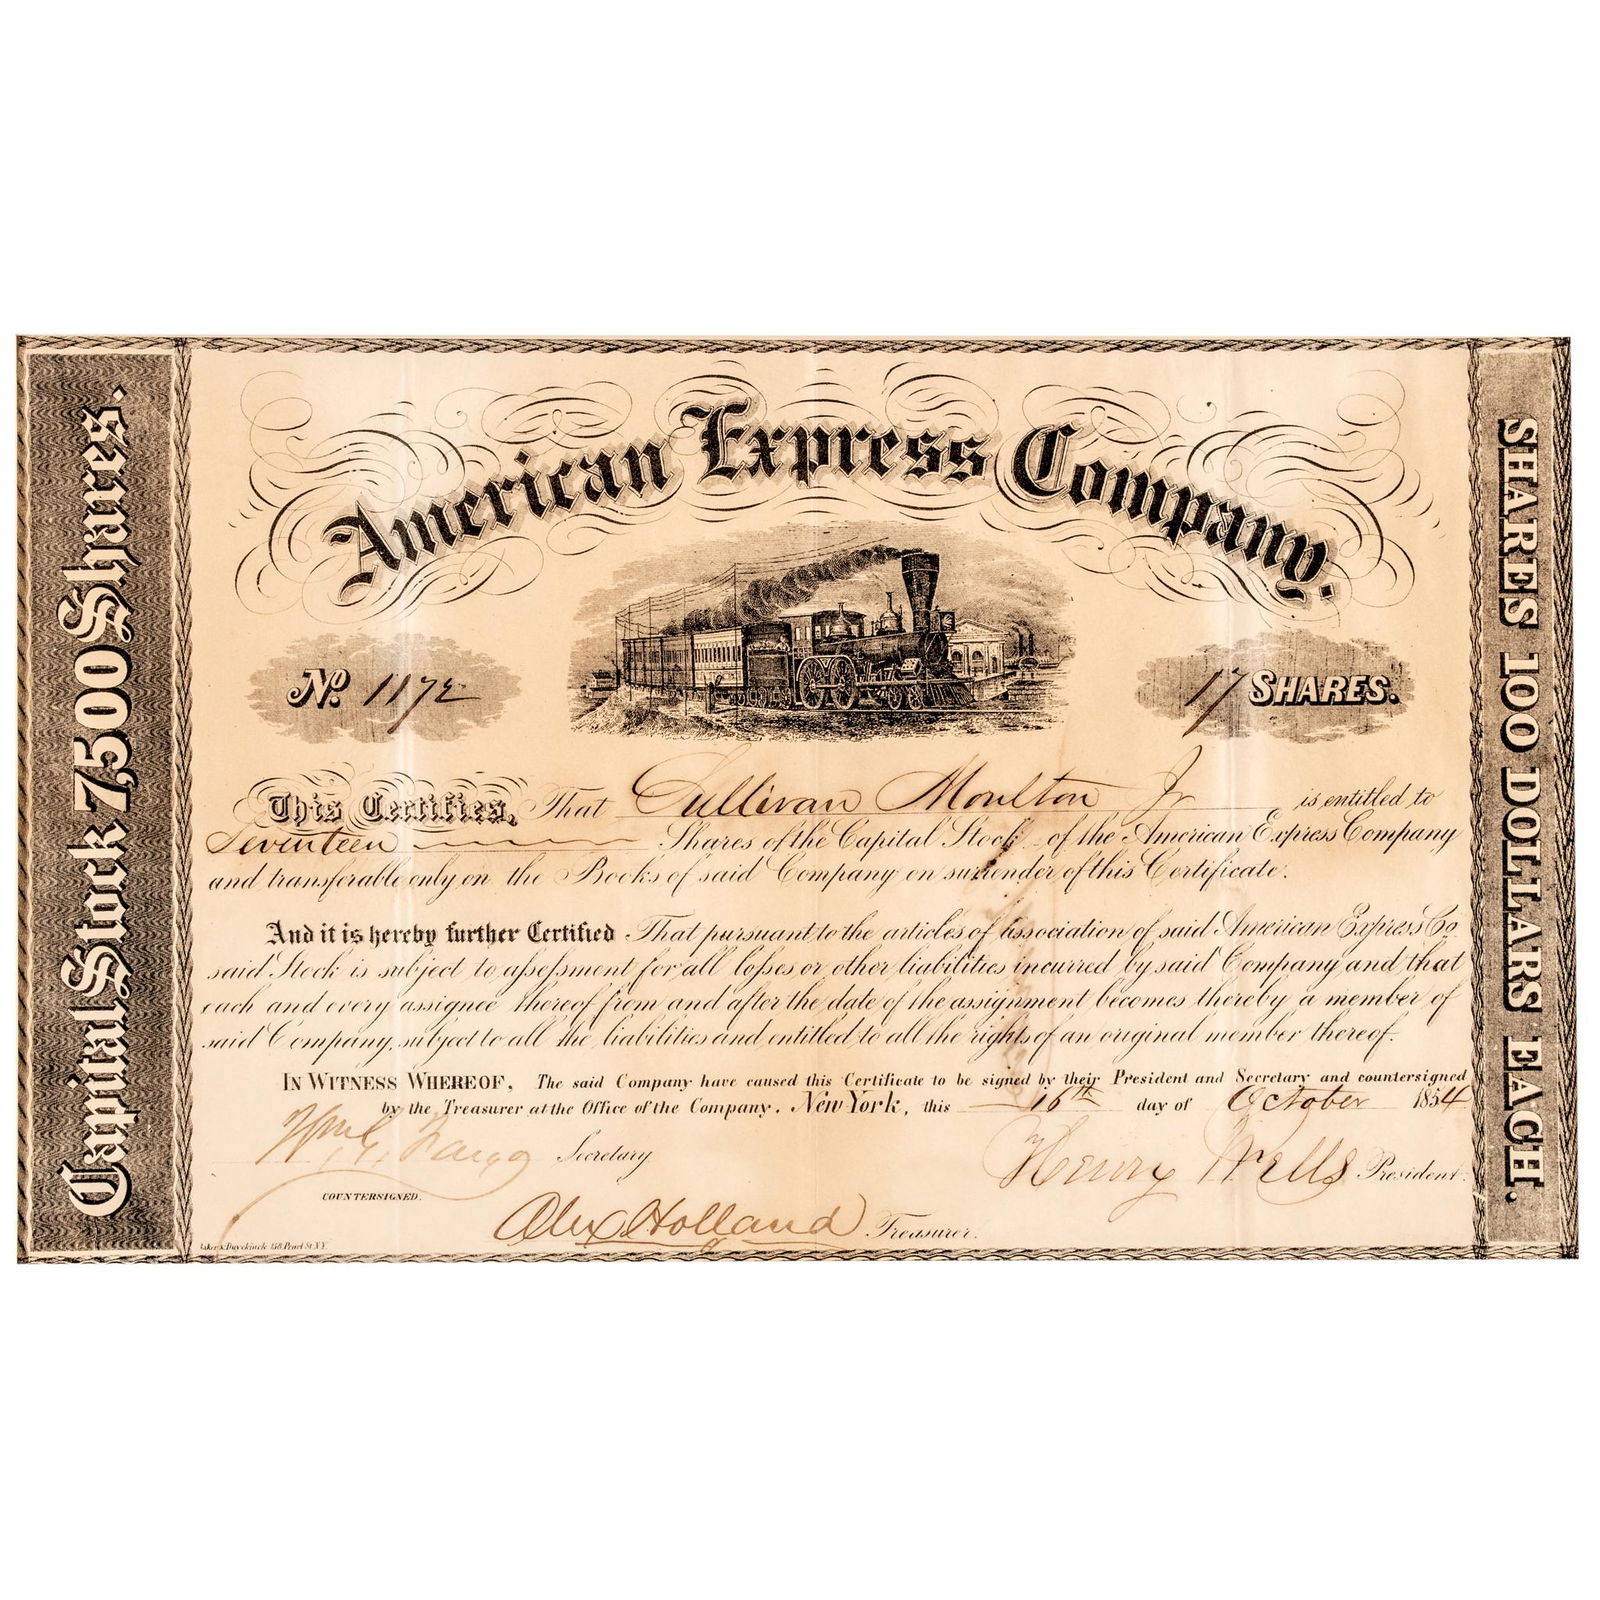 American Express Company.
Capital Stock 7,500 Shares.
SHARES 100 DOLLARS EACH.
No. 1172
17 SHARES.
This Certifies, That Sullivan Moulton Jr is entitled to
Seventeen Shares of the Capital Stock of the American Express Company
and transferable only on the Books of said Company on surrender of this Certificate.
And it is hereby further Certified That pursuant to the articles of association of said American Express Co
said Stock is subject to assessment for all losses or other liabilities incurred by said Company and that
each and every assignee thereof from and after the date of the assignment becomes thereby a member of
said Company, subject to all the liabilities and entitled to all the rights of an original member thereof.
IN WITNESS WHEREOF, The said Company have caused this Certificate to be signed by their President and Secretary and countersigned
by the Treasurer at the Office of the Company. New York, this 16th day of October 1854
Wm G. Fargo Secretary
Henry Wells President.
COUNTERSIGNED.
Alex Holland Treasurer.
& Duyckinck 158 Pearl St. N.Y.